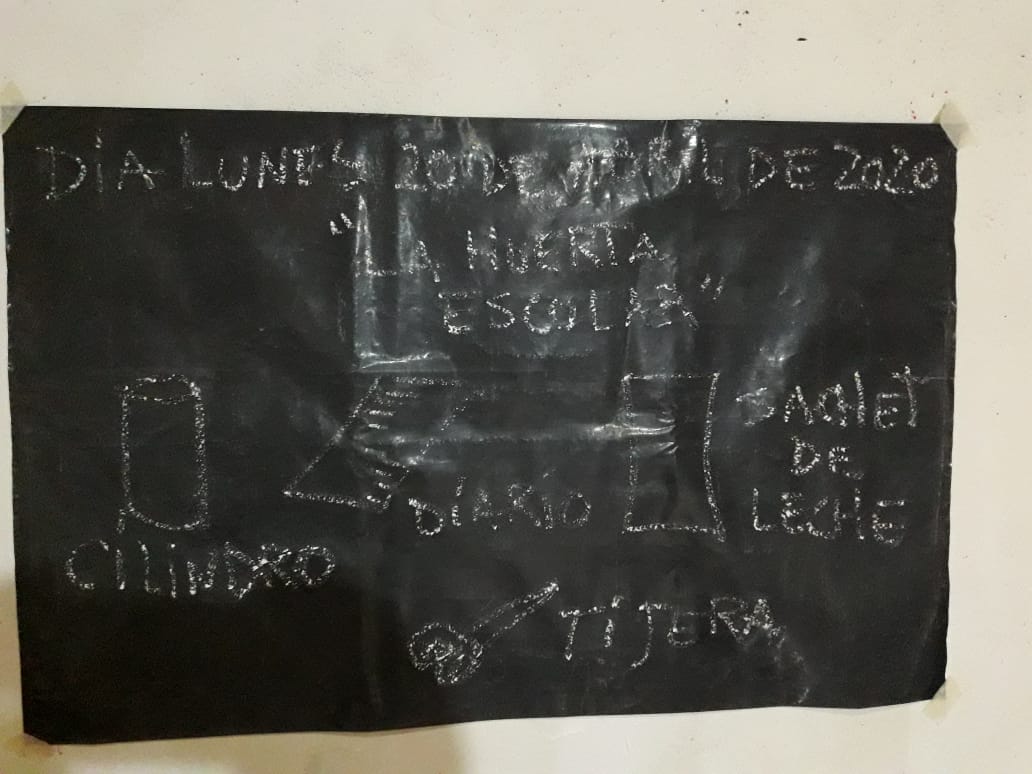 DÍA LUNES 20 DE ABRIL DE 2020
"LA HUERTA
ESCOLAR"
CILINDRO
DIARIO
SACHET
DE
LECHE
TIJERA